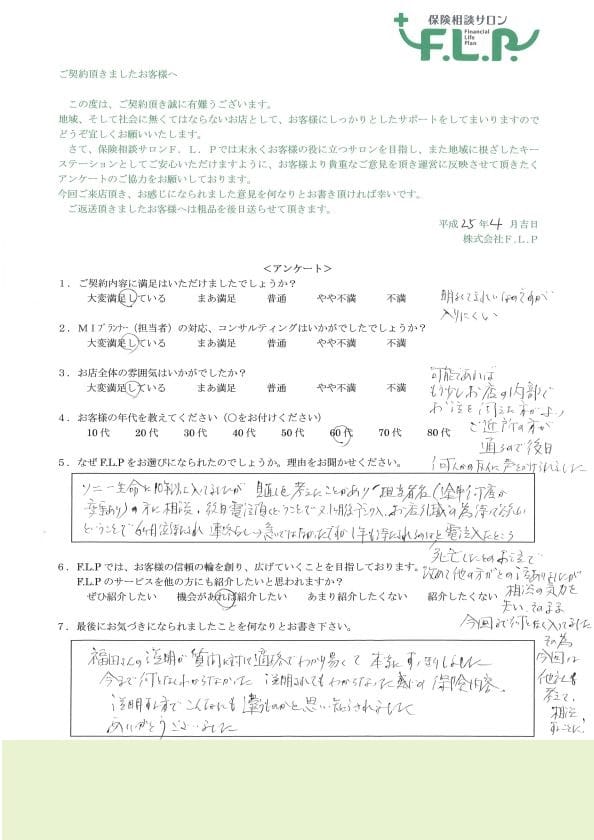 保険相談サロン
Financial
Life
Plan
F.L.P.
ご契約頂きましたお客様へ
この度は、ご契約頂き誠に有難うございます。
地域、そして社会に無くてはならないお店として、お客様にしっかりとしたサポートをしてまいりますので
どうぞ宜しくお願いいたします。
さて、保険相談サロンF．L．Pでは末永くお客様の役に立つサロンを目指し、また地域に根ざしたキー
ステーションとしてご安心いただけますように、お客様より貴重なご意見を頂き運営に反映させて頂きたく
アンケートのご協力をお願いしております。
今回ご来店頂き、お感じになられました意見を何なりとお書き頂ければ幸いです。
ご返送頂きましたお客様へは粗品を後日送らせて頂きます。
平成 25 年 4 月吉日
株式会社F.L.P
＜アンケート＞
1．ご契約内容に満足はいただけましたでしょうか？
大変満足している　まあ満足　普通　やや不満　不満
明るくてきれいなのですが
入りにくい
2．MIプランナー（担当者）の対応、コンサルティングはいかがでしたでしょうか？
大変満足している　まあ満足　普通　やや不満　不満
3．お店全体の雰囲気はいかがでしたか？
大変満足している　まあ満足　普通　やや不満　不満
可能であれば
もう少しお店の内部で
お話を聞えた方がよい
ご近所の方が
通るので後日
何人かの友人に声をかけられました
4．お客様の年代を教えてください（○をお付けください）
10代　20代　30代　40代　50代　60代　70代　80代
5．なぜF.L.Pをお選びになられたのでしょうか。理由をお聞かせください。
ソニー生命に
入ってましたが 見直しを考えたことがあり 担当者名
の方に相談、後日電話頂くということで
ということで6ヶ月
電話入れたところ
死亡したとのお話で
改めて他の方がとの話ありましたが
相談の気力を
失い、そのまま
今回まで何となく入ってました
その為
今回は
他社も
考えて、
相談
することに！
6．F.L.Pでは、お客様の信頼の輪を創り、広げていくことを目指しております。
F.L.Pのサービスを他の方にも紹介したいと思われますか？
ぜひ紹介したい　機会があれば紹介したい　あまり紹介したくない　紹介したくない
7．最後にお気づきになられましたことを何なりとお書き下さい。
福田さんの説明が質問に対して適格でわかり易くて 本当にすっきりしました
今まで何となくわからなかった 説明されてもわからなかった 保険内容、
説明する方でこんなにも違うものかと思い知らされました
ありがとうございました